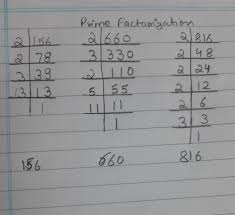 Prime Factorization
2 | 156
2 | 78
3 | 39
13 | 13
1
2 | 660
3 | 330
2 | 110
5 | 55
11 | 11
1
2 | 816
2 | 48
2 | 24
2 | 12
2 | 6
3 | 3
1
156
660
816